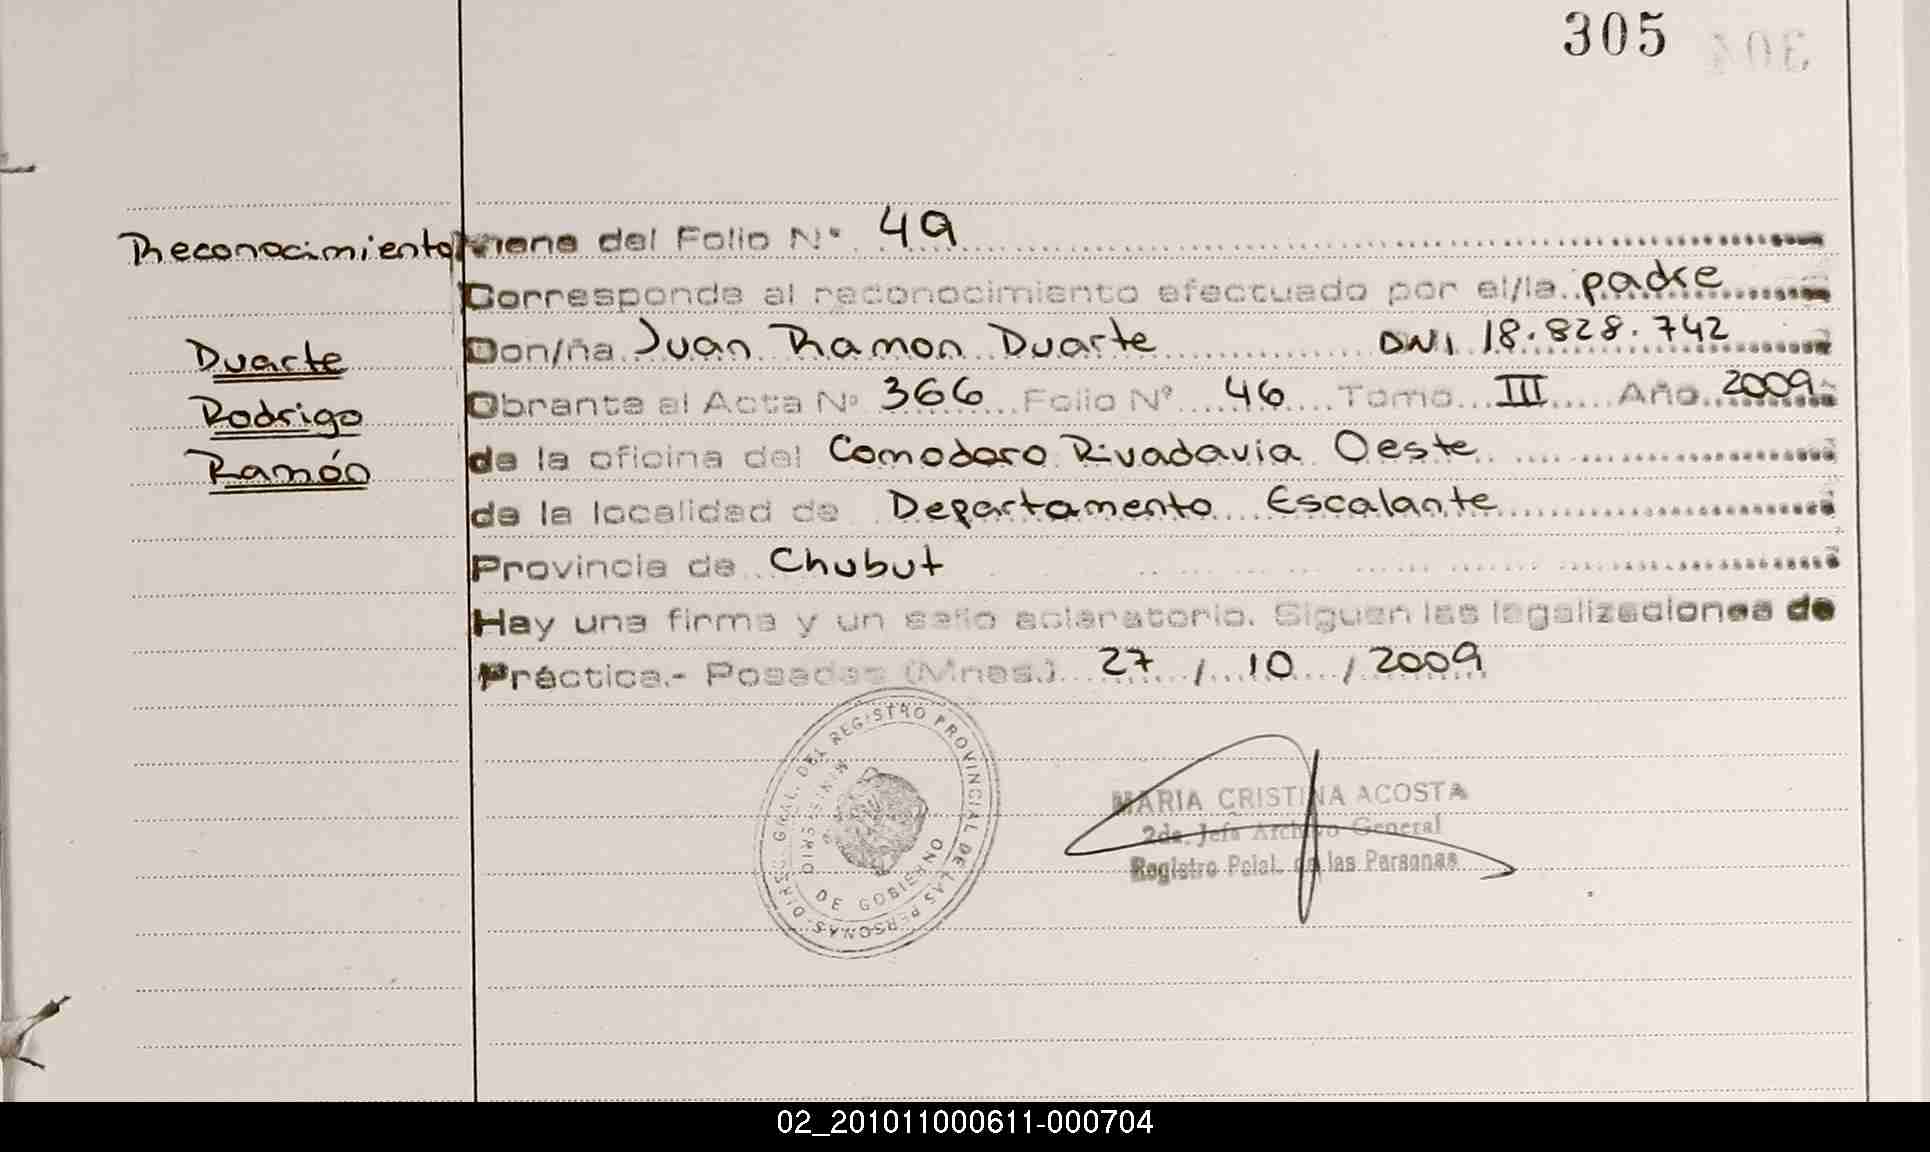 305
304
Reconocimiento
Viene del Folio N° 49
Corresponde al reconocimiento efectuado por el/la padre
Duarte
Don/ña Juan Ramon Duarte DNI 18.828.742
Rodrigo
Obrante al Acta N° 366 Folio N° 46 Tomo III Año 2009
Ramón
de la oficina del Comodoro Rivadavia Oeste
de la localidad de Departamento Escalante
Provincia de Chubut
Hay una firma y un sello aclaratorio. Siguen las legalizaciones de
Práctica.- Posadas (Mnes.) 27 / 10 / 2009
DIREC. GRAL. DEL REGISTRO PROVINCIAL DE LAS PERSONAS
MINISTERIO DE GOBIERNO
MARIA CRISTINA ACOSTA
2da. Jefa Archivo General
Registro Pcial. de las Personas
02_201011000611-000704